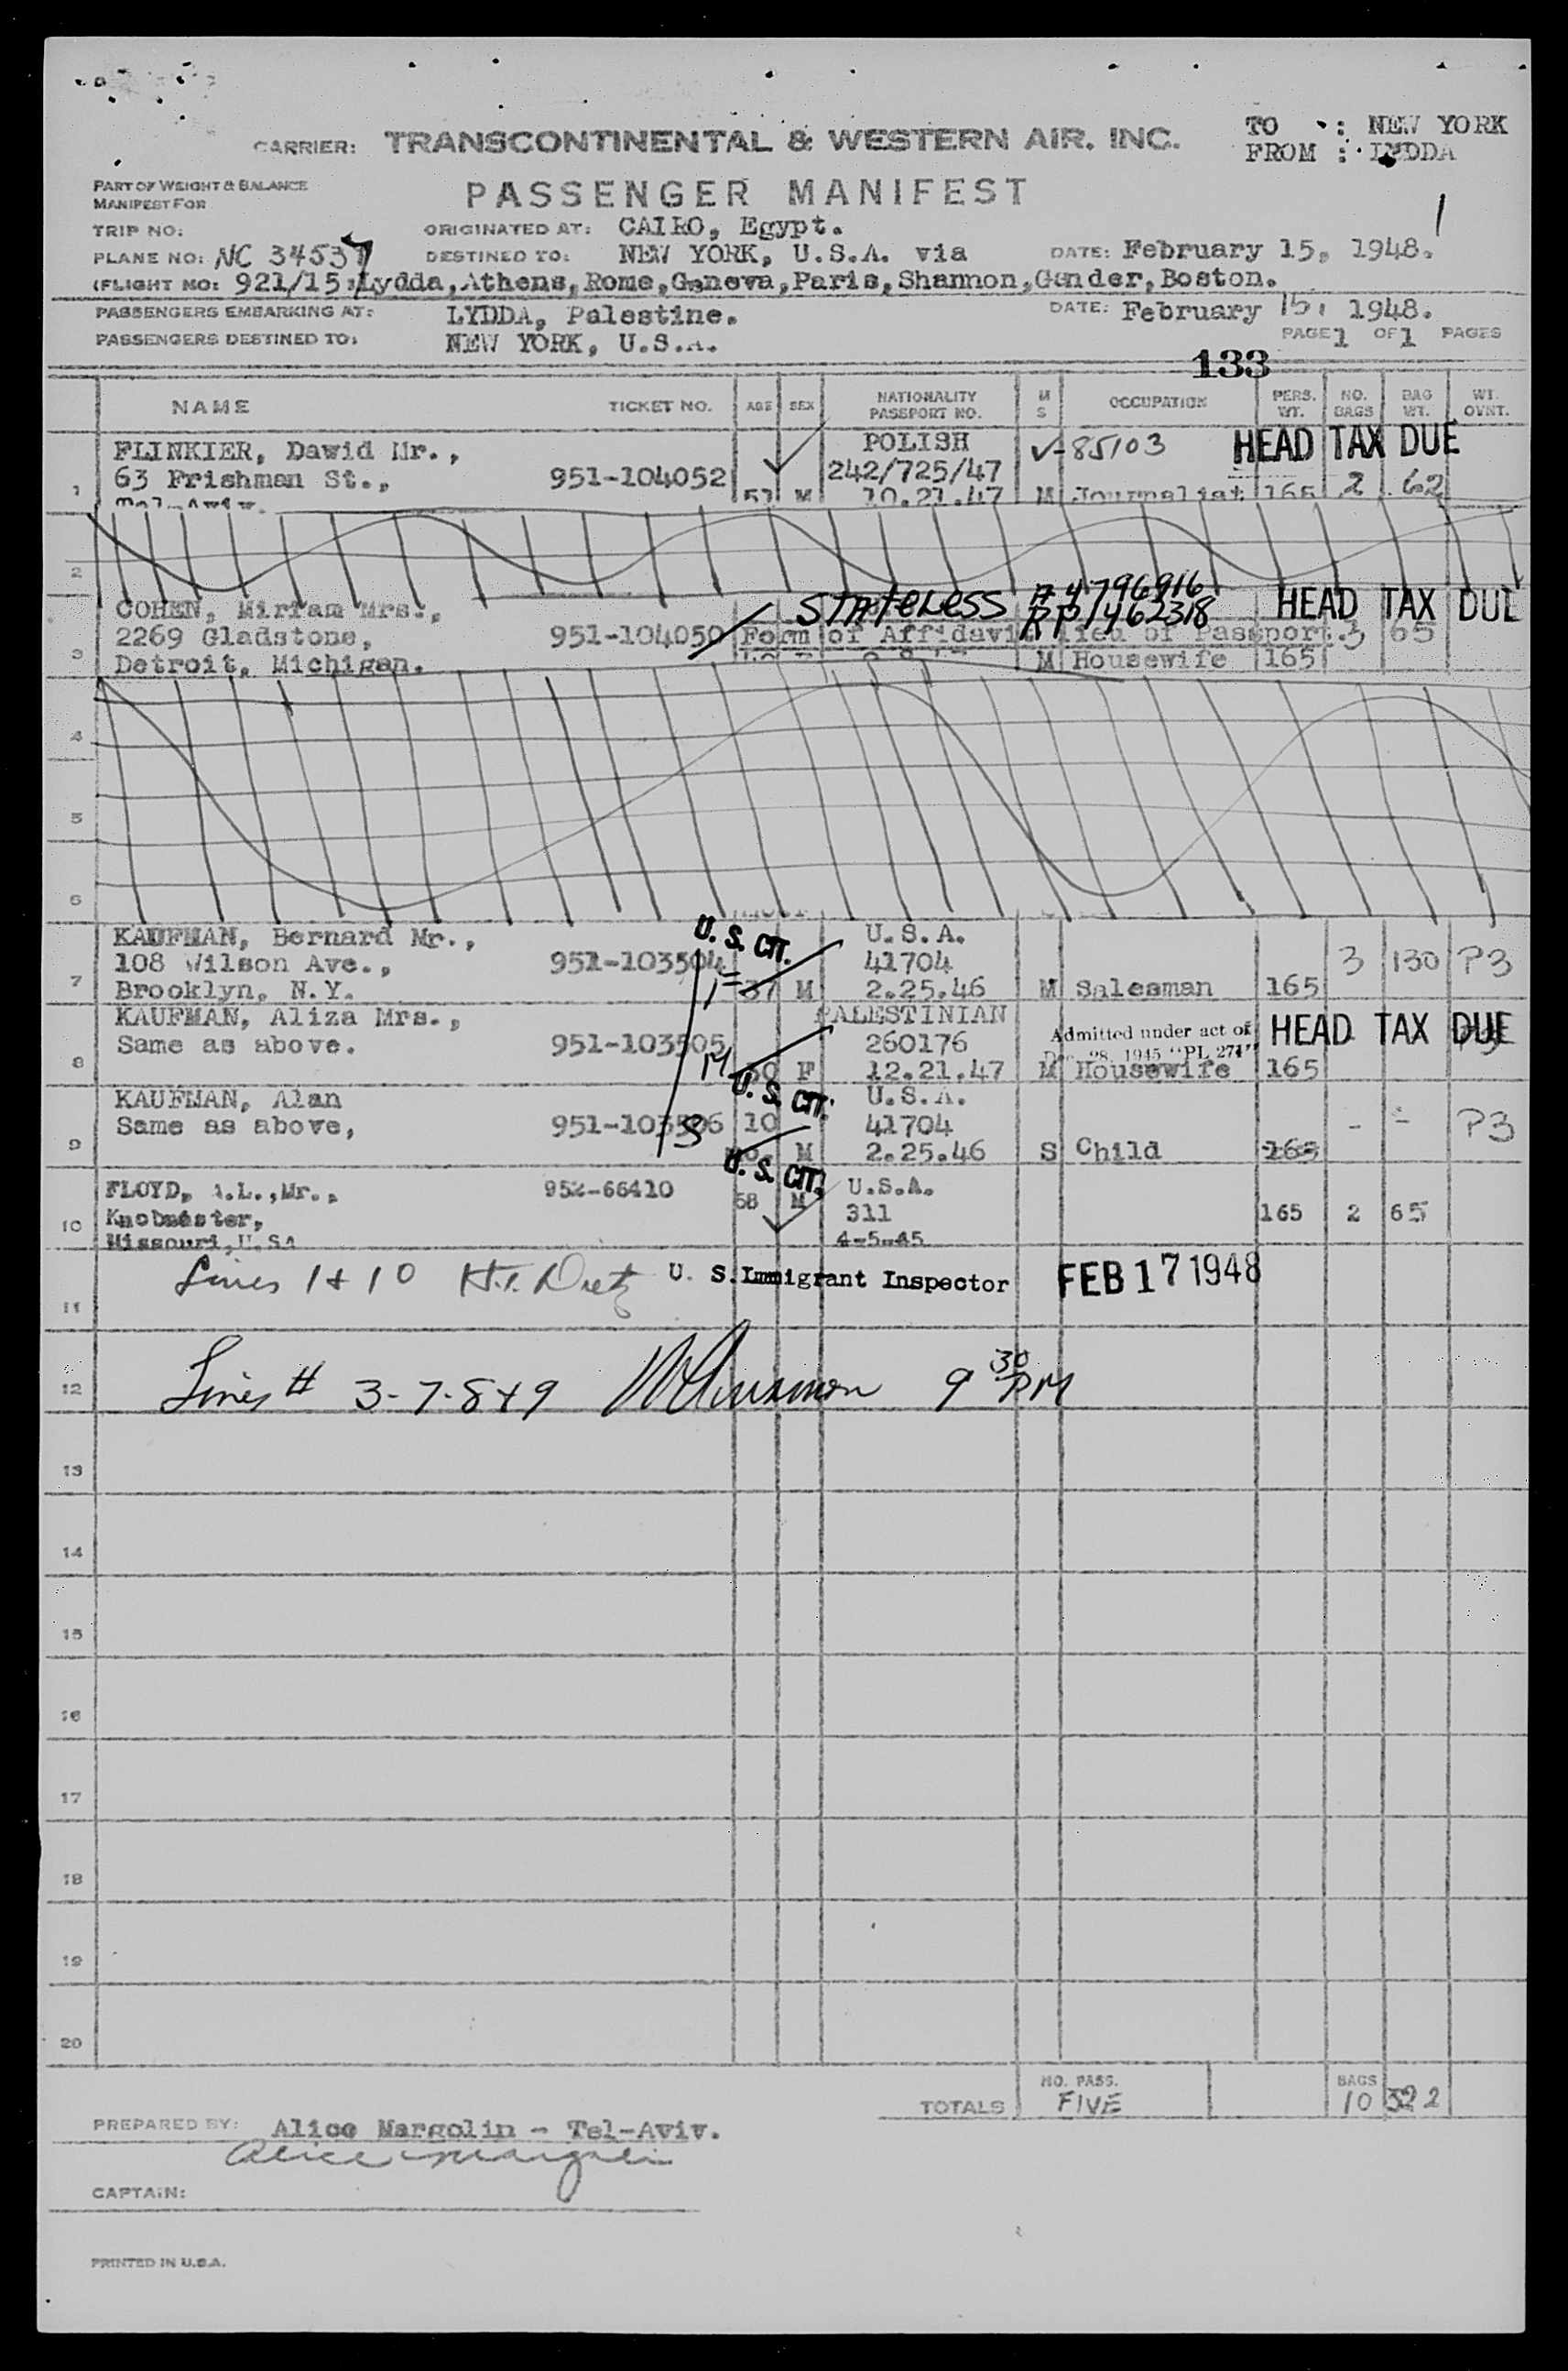 CARRIER: TRANSCONTINENTAL & WESTERN AIR. INC.
TO : NEW YORK
FROM : LYDDA
PART OF WEIGHT & BALANCE
MANIFEST FOR
PASSENGER MANIFEST
1
TRIP NO:
ORIGINATED AT: CAIRO, Egypt.
PLANE NO: NC 34537
DESTINED TO: NEW YORK, U.S.A. via
DATE: February 15, 1948.
(FLIGHT NO: 921/15 Lydda,Athens,Rome,Geneva,Paris,Shannon,Gander,Boston.
PASSENGERS EMBARKING AT: LYDDA, Palestine.
DATE: February 15, 1948.
PASSENGERS DESTINED TO: NEW YORK, U.S.A.
PAGE 1 OF 1 PAGES
133
NAME TICKET NO. AGE SEX NATIONALITY PASSPORT NO. M S OCCUPATION PERS. WT. NO. BAGS BAG WT. WT. OVNT.
FLINKIER, Dawid Mr., POLISH 85103 HEAD TAX DUE
63 Frishman St., 951-104052 242/725/47
1 Tel-Aviv. 51 M 10.21.47 M Journalist 165 2 62
2
STATELESS A4796916 HEAD TAX DUE
COHEN, Miriam Mrs., RP1462318
2269 Gladstone, 951-104050 Form of Affidavit lieu of Passport. 3 65
3 Detroit, Michigan. M Housewife 165
4
5
6
KAUFMAN, Bernard Mr., U. S. CIT. U.S.A.
108 Wilson Ave., 951-103504 41704 3 130 P3
7 Brooklyn, N.Y. 37 M 2.25.46 M Salesman 165
KAUFMAN, Aliza Mrs., PALESTINIAN Admitted under act of HEAD TAX DUE
Same as above. 951-103505 260176 Dec. 28, 1945 "PL 271"
8 30 F 12.21.47 M Housewife 165
KAUFMAN, Alan U. S. CIT. U.S.A.
Same as above, 951-103506 10 41704 - - P3
9 M 2.25.46 S Child 165
FLOYD, A.L.,Mr., 952-66410 58 M U. S. CIT. U.S.A.
10 311 165 2 65
Missouri,U.SA 4-5-45
Lines 1 & 10 H.T. Dietz U. S. Immigrant Inspector FEB 17 1948
11
12 Lines # 3-7-8 & 9 9 30 PM
13
14
15
16
17
18
19
20
TOTALS NO. PASS. FIVE BAGS 10 322
PREPARED BY: Alice Margolin - Tel-Aviv.
Alice Margolin
CAPTAIN:
PRINTED IN U.S.A.